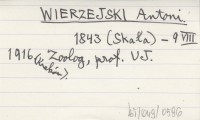 WIERZEJSKI Antoni.
1843 (Skała) – 9 VIII
1916 (Kraków). Zoolog, prof. UJ.